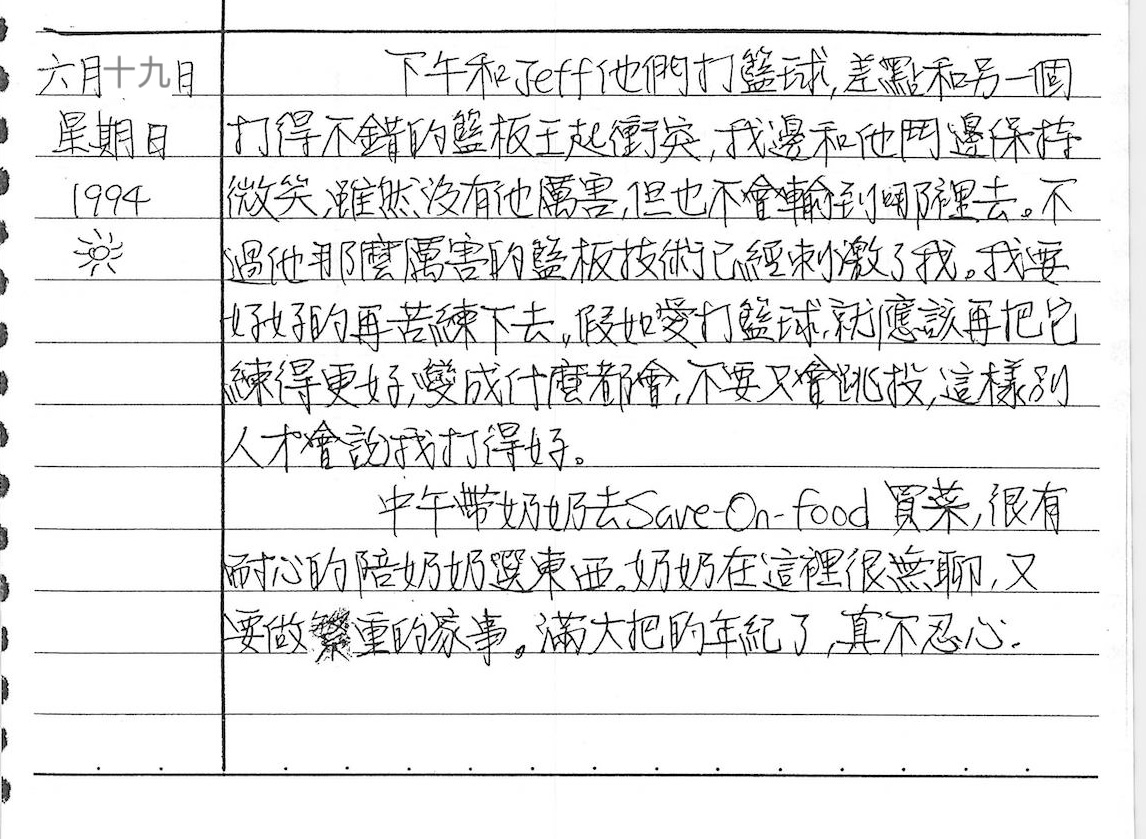 六月十九日
星期日
1994
下午和Jeff他們打籃球,差點和另一個
打得不錯的籃板王起衝突,我邊和他鬥邊保持
微笑,雖然沒有他厲害,但也不會輸到哪裡去。不
過他那麼厲害的籃板技術已經刺激了我。我要
好好的再苦練下去,假如愛打籃球,就應該再把它
練得更好,變成什麼都會,不要只會跳投,這樣別
人才會說我打得好。
中午帶奶奶去Save-On-food 買菜,很有
耐心的陪奶奶選東西。奶奶在這裡很無聊,又
要做繁重的家事。滿大把的年紀了,真不忍心.